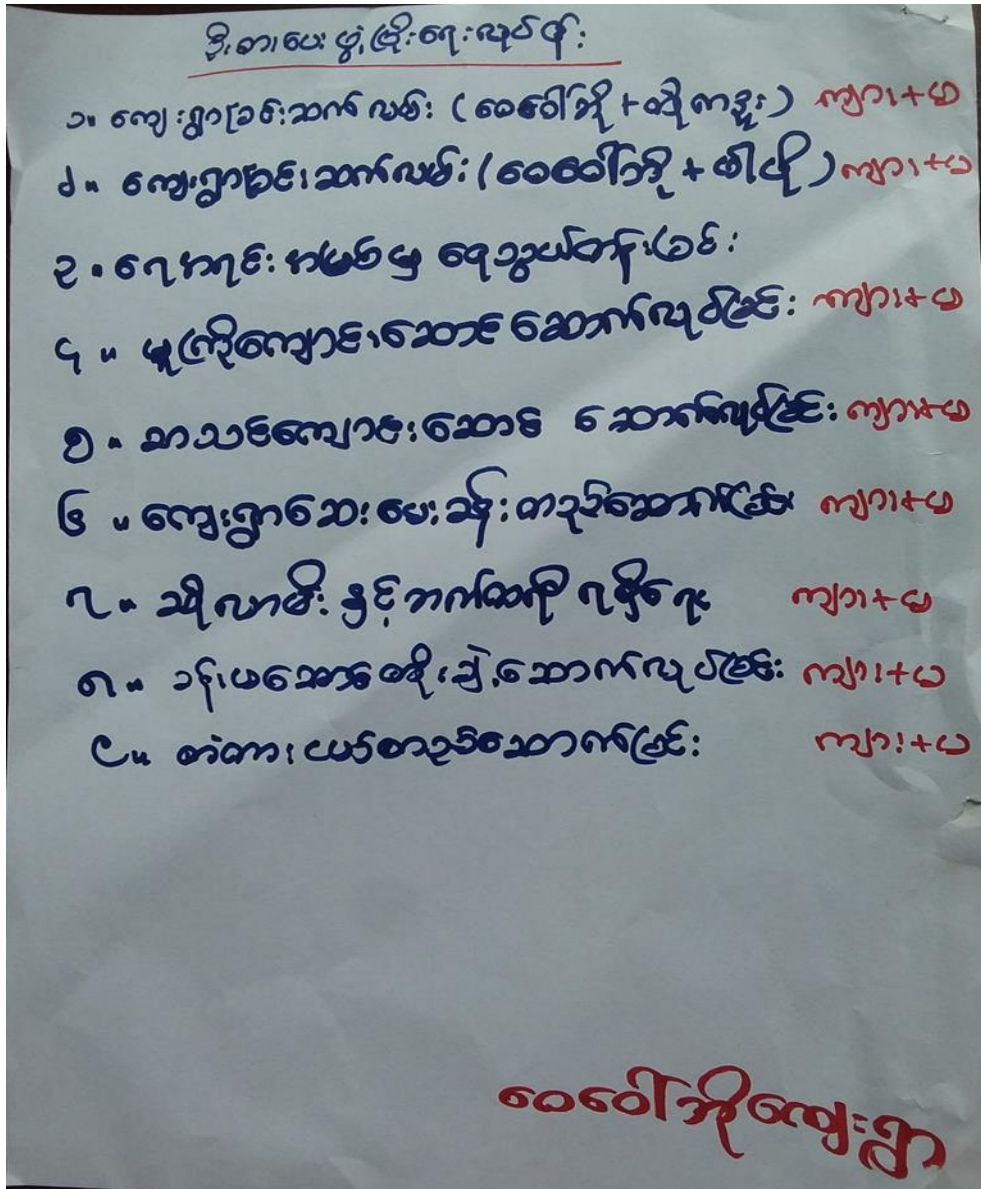 ဦးစားပေး ဖွံ့ဖြိုးရေးလုပ်ငန်း
၁။ ကျေးရွာခြင်းဆက် လမ်း (ဝေဝေါ်ဘို + ဆိုကဒူး) ကျား+မ
၂။ ကျေးရွာခြင်းဆက်လမ်း (ဝေဝေါ်ဘို + ) ကျား+မ
၃။ ရေအရင်းအမြစ်မှ ရေသွယ်တန်းခြင်း
၄။ မူကြိုကျောင်းဆောင် ဆောက်လုပ်ခြင်း ကျား+မ
၅။ စာသင်ကျောင်းဆောင် ဆောက်လုပ်ခြင်း ကျား+မ
၆။ ကျေးရွာဆေးပေးခန်း တည်ဆောက်ခြင်း ကျား+မ
၇။ ဆိုလာမီး နှင့် ဘက်ထရီ ရရှိရေး ကျား+မ
၈။ ခန်းမဆောင် တိုးချဲ့ဆောက်လုပ်ခြင်း ကျား+မ
၉။ တံတား ငယ်တည်ဆောက်ခြင်း ကျား+မ
ဝေဝေါ်ဘိုကျေးရွာ